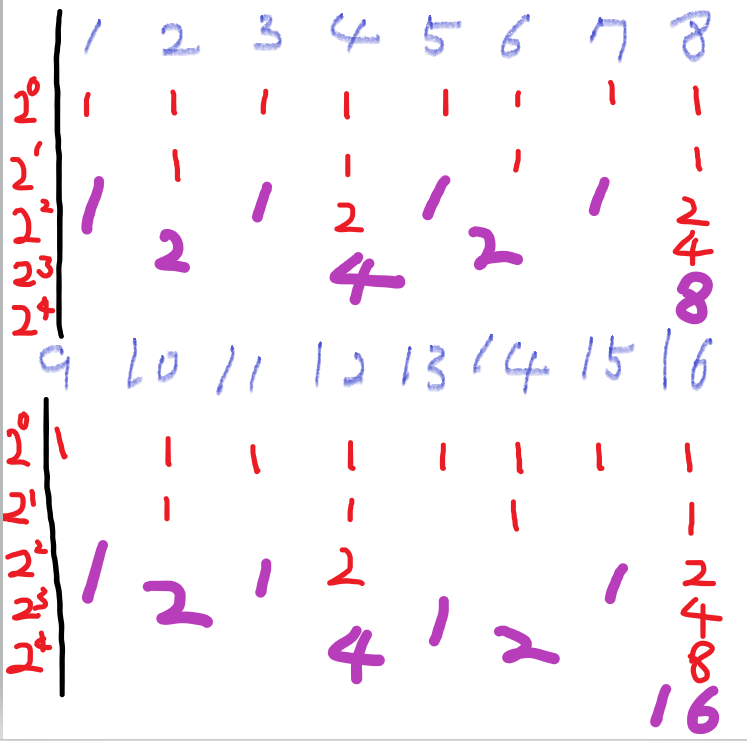 1 2 3 4 5 6 7 8
2⁰ 1 1 1 1 1 1 1 1
2¹ 1 1 1 1
1 1 1 1
2² 2 2
2 4 2 4
2³
8
2⁴
9 10 11 12 13 14 15 16
2⁰ 1 1 1 1 1 1 1 1
2¹ 1 1 1 1
2² 1 1 2 1 2
2³ 2 1 4
2⁴ 4 2 8
16